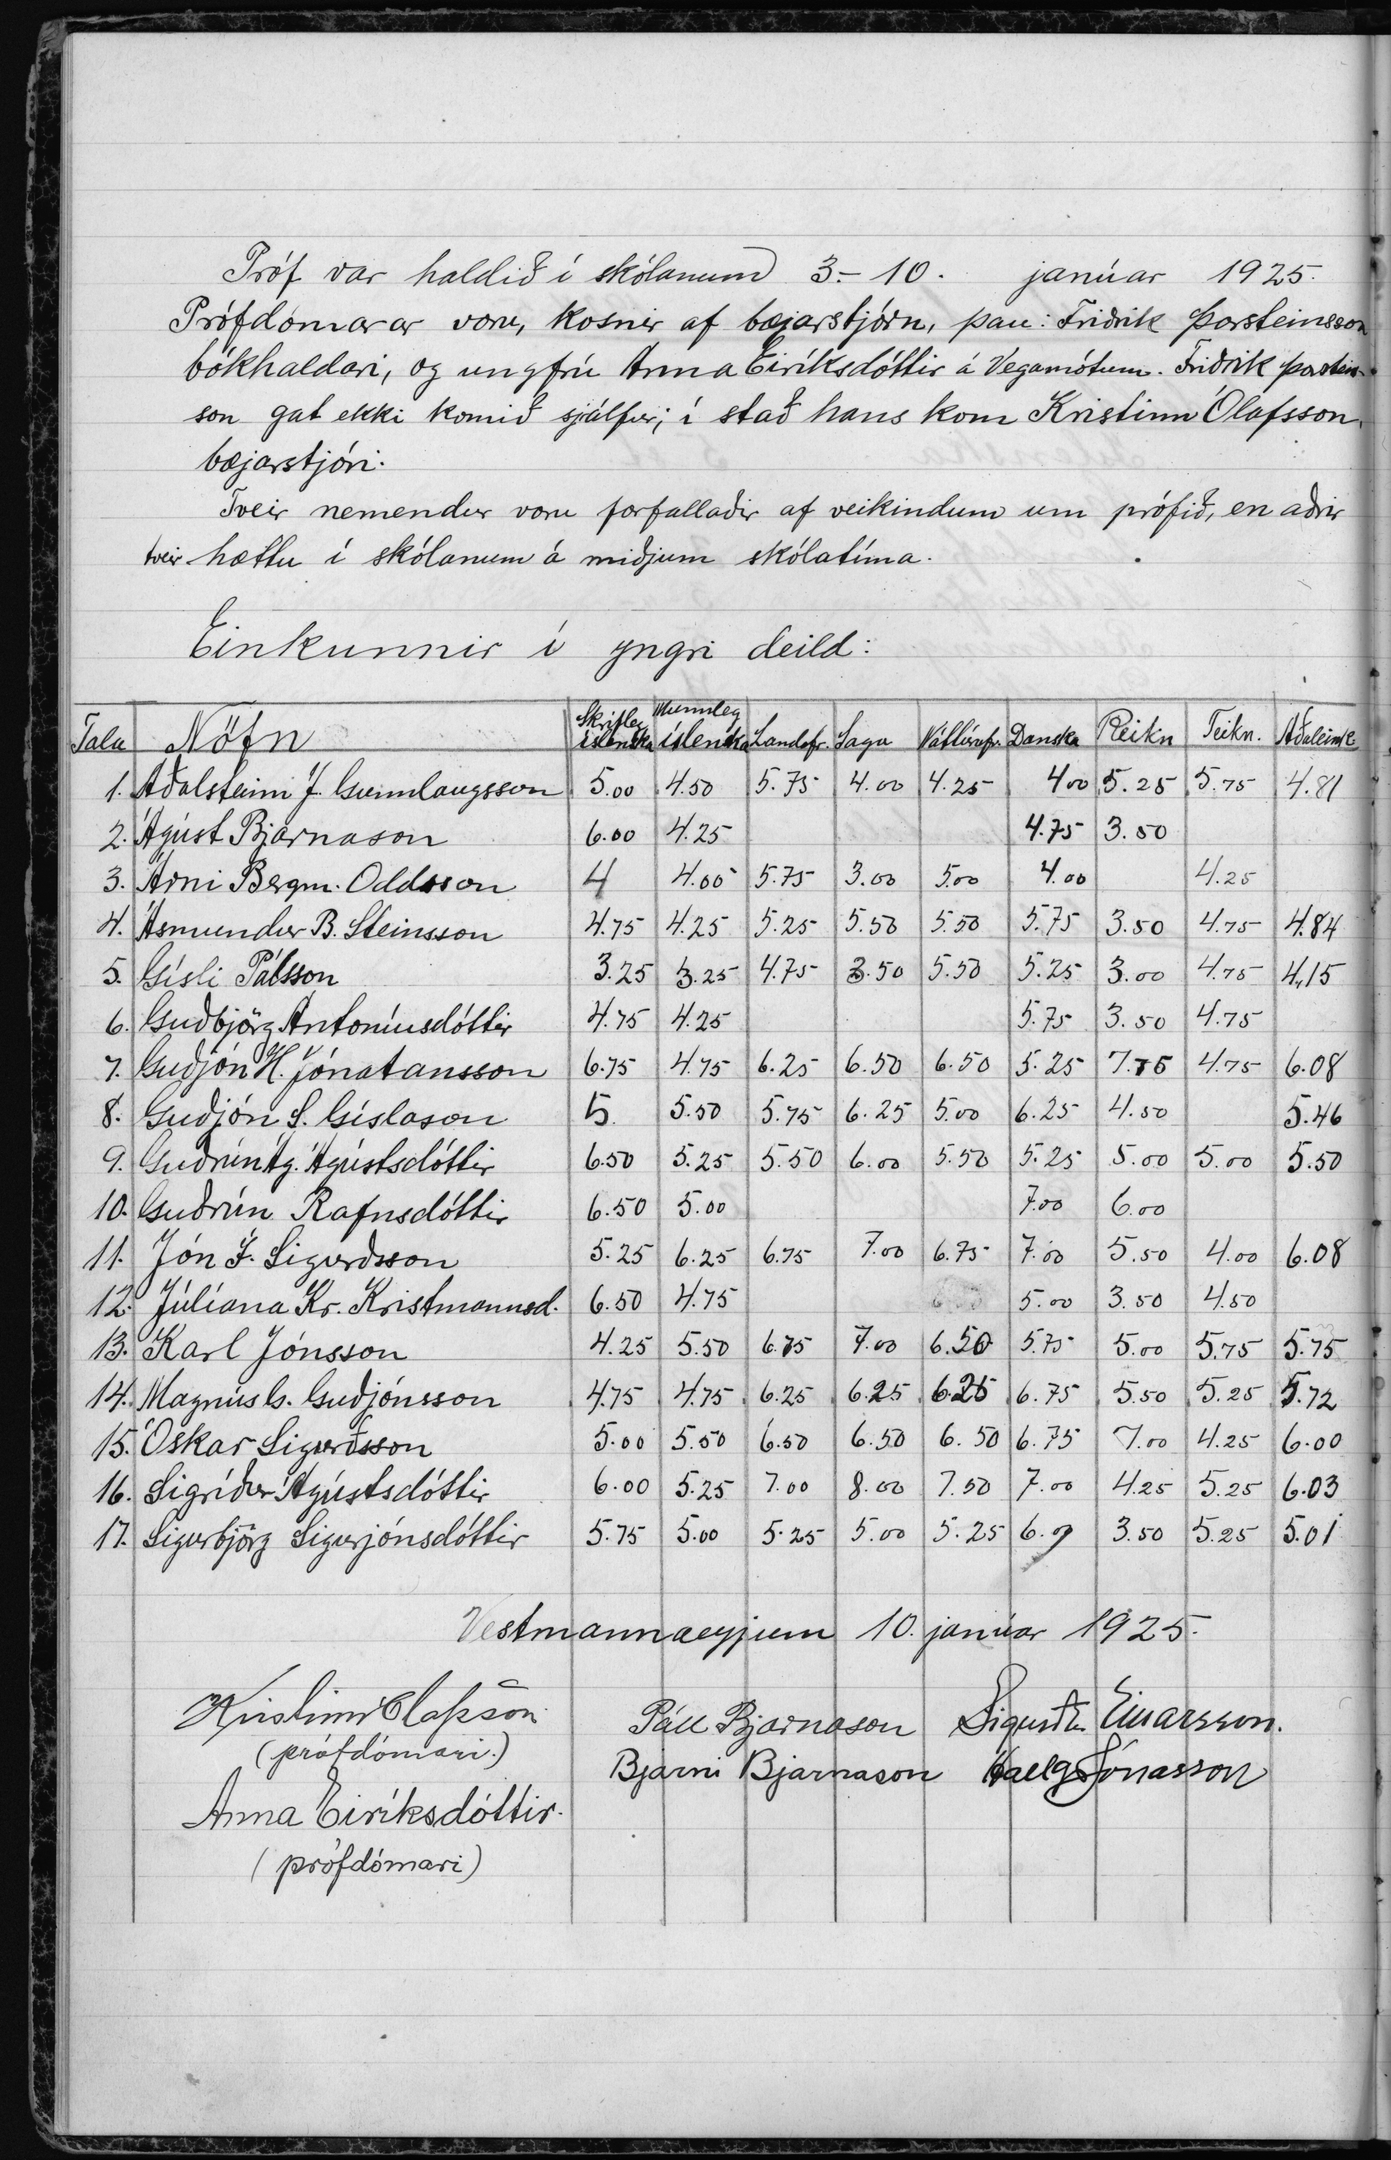 Próf var haldið í skólanum 3.–10. janúar 1925.
Prófdómarar voru, kosnir af bæjarstjórn, þau: Friðrik Þorsteinsson
bókhaldari, og ungfrú Anna Eiríksdóttir á Vegamótum. Friðrik Þorsteins-
son gat ekki komið sjálfur; í stað hans kom Kristinn Ólafsson,
bæjarstjóri.
Tveir nemendur voru forfallaðir af veikindum um prófið, en aðrir
tveir hættu í skólanum á miðjum skólatíma.
Einkunnir í yngri deild:
Tala Nöfn Skrifleg íslenska Munnleg íslenska Landafr. Saga Náttúrufr. Danska Reikn Teikn. Aðaleink
1. Aðalsteinn J. Gunnlaugsson 5.00 4.50 5.75 4.00 4.25 4.00 5.25 5.75 4.81
2. Ágúst Bjarnason 6.00 4.25 4.75 3.50
3. Árni Bergm. Oddsson 4 4.00 5.75 3.00 5.00 4.00 4.25
4. Ásmundur B. Steinsson 4.75 4.25 5.25 5.50 5.50 5.75 3.50 4.75 4.84
5. Gísli Pálsson 3.25 3.25 4.75 3.50 5.50 5.25 3.00 4.75 4,15
6. Guðbjörg Antoníusdóttir 4.75 4.25 5.75 3.50 4.75
7. Guðjón H. Jónatansson 6.75 4.75 6.25 6.50 6.50 5.25 7.75 4.75 6.08
8. Guðjón S. Gíslason 5. 5.50 5.75 6.25 5.00 6.25 4.50 5.46
9. Guðrún Ág. Ágústsdóttir 6.50 5.25 5.50 6.00 5.50 5.25 5.00 5.00 5.50
10. Guðrún Rafnsdóttir 6.50 5.00 7.00 6.00
11. Jón Í. Sigurðsson 5.25 6.25 6.75 7.00 6.75 7.00 5.50 4.00 6.08
12. Júlíana Kr. Kristmannsd. 6.50 4.75 5.00 3.50 4.50
13. Karl Jónsson 4.25 5.50 6.75 7.00 6.50 5.75 5.00 5.75 5.75
14. Magnús G. Guðjónsson 4.75 4.75 6.25 6.25 6.25 6.75 5.50 5.25 5.72
15. Óskar Sigurðsson 5.00 5.50 6.50 6.50 6.50 6.75 7.00 4.25 6.00
16. Sigríður Ágústsdóttir 6.00 5.25 7.00 8.00 7.50 7.00 4.25 5.25 6.03
17. Sigurbjörg Sigurjónsdóttir 5.75 5.00 5.25 5.00 5.25 6.00 3.50 5.25 5.01
Vestmannaeyjum 10. janúar 1925.
Kristinn Ólafsson Páll Bjarnason Einarsson.
(prófdómari.) Bjarni Bjarnason Hallgr Jónasson
Anna Eiríksdóttir.
(prófdómari)